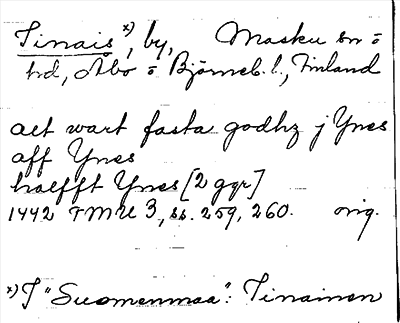 Tinais x), by, Masku sn o
hd, Åbo o Björneb. l., Finland
alt wart fasta godhz j Ynes
aff Ynes
haelfft Ynes [2 ggr]
1442 FMU 3, ss. 259, 260. orig.
x) I "Suomenmaa": Tinainen